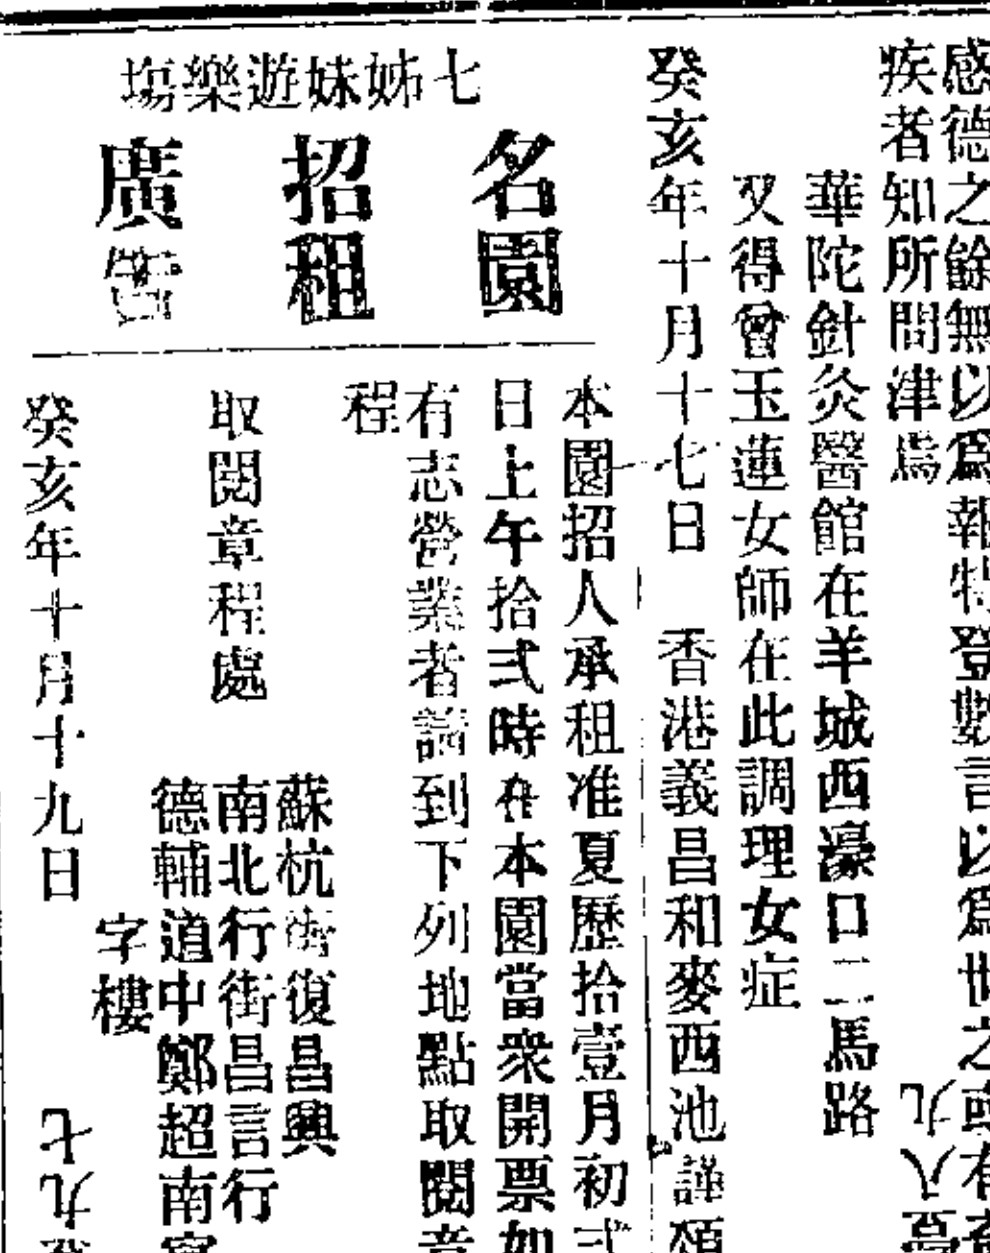 感德之餘無以爲報特登數言以爲世之
疾者知所問津焉
華陀針灸醫館在羊城西濠口二馬路
又得曾玉蓮女師在此調理女症
癸亥年十月十七日 香港義昌和麥西池謹頌
七姊妹遊樂塲
名園招租廣告
本園招人承租准夏歷拾壹月初弍
日上午拾弍時在本園當衆開票如
有志營業者請到下列地點取閱章
程
取閱章程處
蘇杭街復昌興
南北行街昌言行
德輔道中鄭超南寫
字樓
癸亥年十月十九日